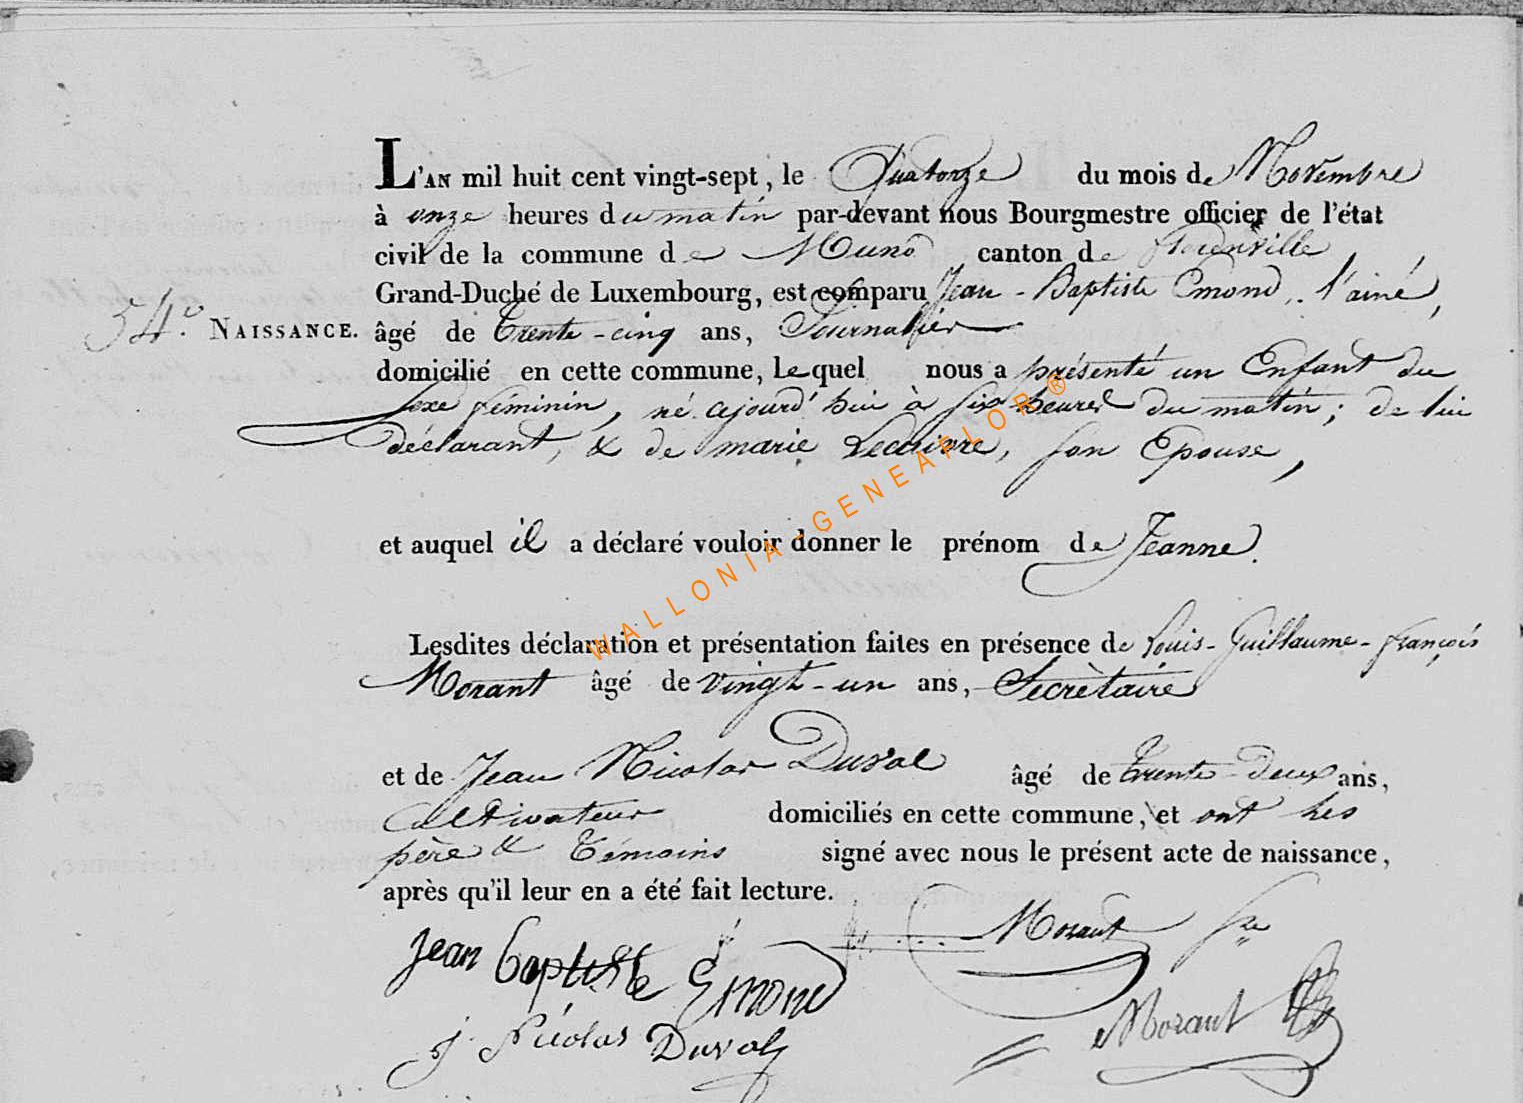 L'AN mil huit cent vingt-sept, le Quatorze du mois de Novembre
à onze heures du matin par-devant nous Bourgmestre officier de l'état
civil de la commune de Muno canton de florenville
Grand-Duché de Luxembourg, est comparu Jean-Baptiste Emond, l'ainé,
54.e NAISSANCE. âgé de Trente-cinq ans, Journalier
domicilié en cette commune, Lequel nous a présenté un Enfant du
sexe féminin, né cejourd'hui à six heures du matin; de lui
déclarant, & de marie Lecuivre, son Epouse,
et auquel il a déclaré vouloir donner le prénom de Jeanne.
Lesdites déclaration et présentation faites en présence de Louis-Guillaume-françois
Morant âgé de vingt-un ans, Secrètaire
et de Jean Nicolas Duval âgé de Trente-deux ans,
Cultivateur domiciliés en cette commune, et ont les
père & Témoins signé avec nous le présent acte de naissance,
après qu'il leur en a été fait lecture.
Morant
Jean baptiste Emond
j. Nicolas Duval
Morant
WALLONIA-GENEAFLOR®